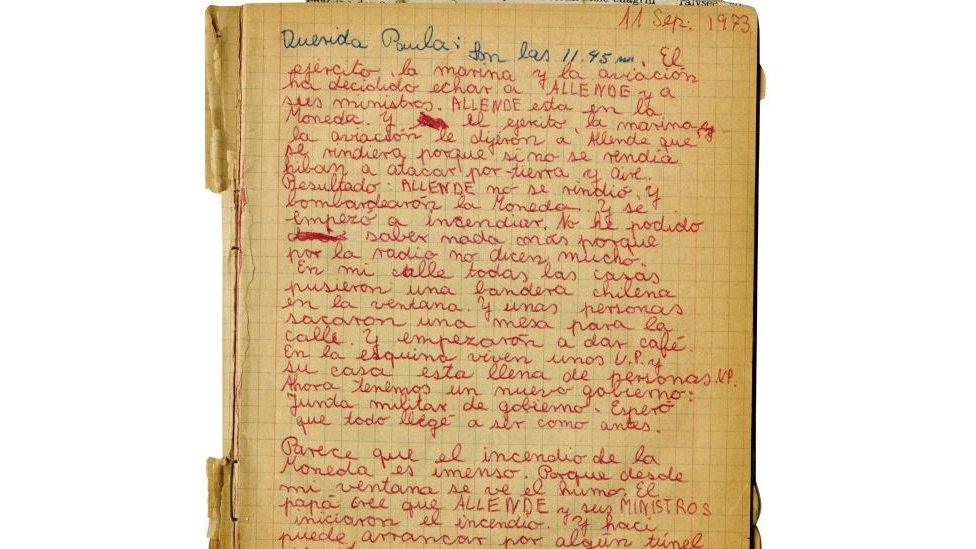 11 Sep. 1973
Querida Paula: Son las 11.45 m. El
ejército, la marina y la aviación
ha decidido echar a ALLENDE y a
sus ministros. ALLENDE esta en la
Moneda. Y el ejercito, la marina, y
la aviación le dijerón a Allende que
se rindiera porque si no se rendia
hiban a atacar por tierra y aire.
Resultado: ALLENDE no se rindió. Y
bombardearón la Moneda. Y se
empezó a incendiar. No he podido
saber nada más porque
por la radio no dicen mucho.
En mi calle todas las casas
pusieron una bandera chilena
en la ventana. Y unas personas
sacaron una mesa para la
calle. Y empezarón a dar café.
En la esquina viven unos U.P. y
su casa esta llena de personas U.P.
Ahora tenemos un nuevo gobierno:
Junta militar de gobierno. Esperó
que todo llegé a ser como antes.
Parece que el incendio de la
Moneda es imenso. Porque desde
mi ventana se ve el humo. El
papá cree que ALLENDE y sus MINISTROS
iniciaron el incendio. Y haci
puede arrancar por algún túnel